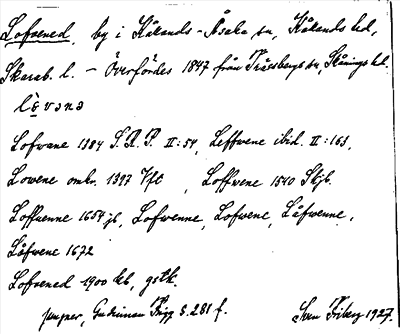 Lofvened, by i Kålands-Åsaka sn, Kålands hd,
Skarab. l. – Överfördes 1847 från Tråvads sn, Skånings hd.
Lofwane 1384 S.R.P. II:54, Leffwene ibid. II:163,
Lowene omkr. 1397 Vft, Loffwene 1540 Skjb.
Loffuenne 1654 jb, Lofwenne, Lofwene, Låfwenne,
Låfwene 1672
Lofvened 1900 kb, gstk.
S. 281 f. Sven 1927.